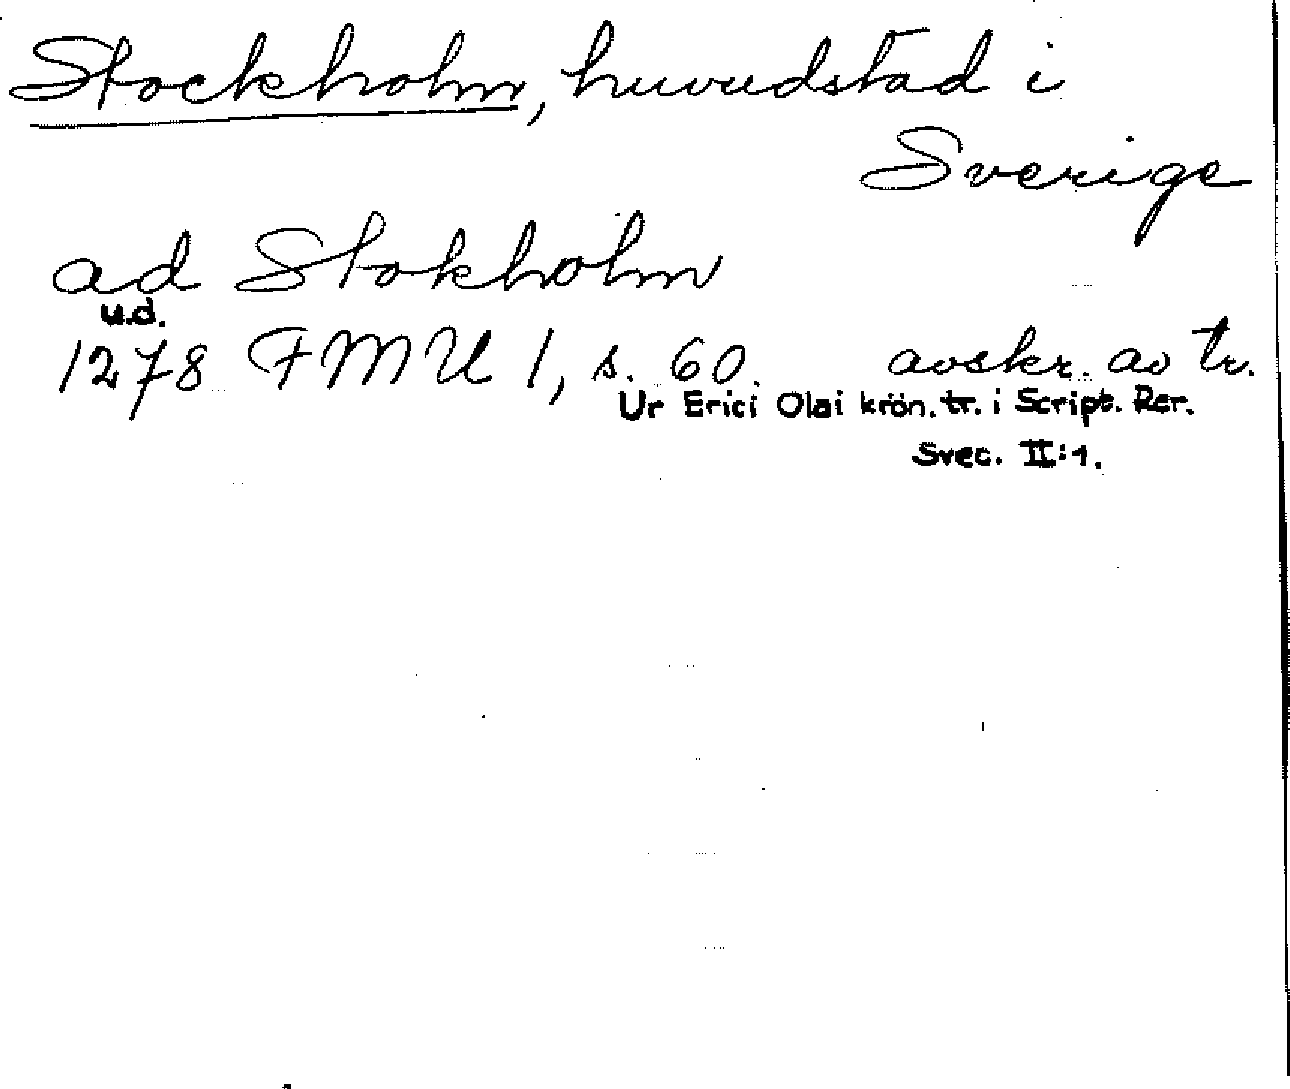 Stockholm, huvudstad i
Sverige
ad Stokholm
u.d.
1278 FMU 1, s. 60. avskr. av tr.
Ur Erici Olai krön. tr. i Script. Rer.
Svec. II:1.